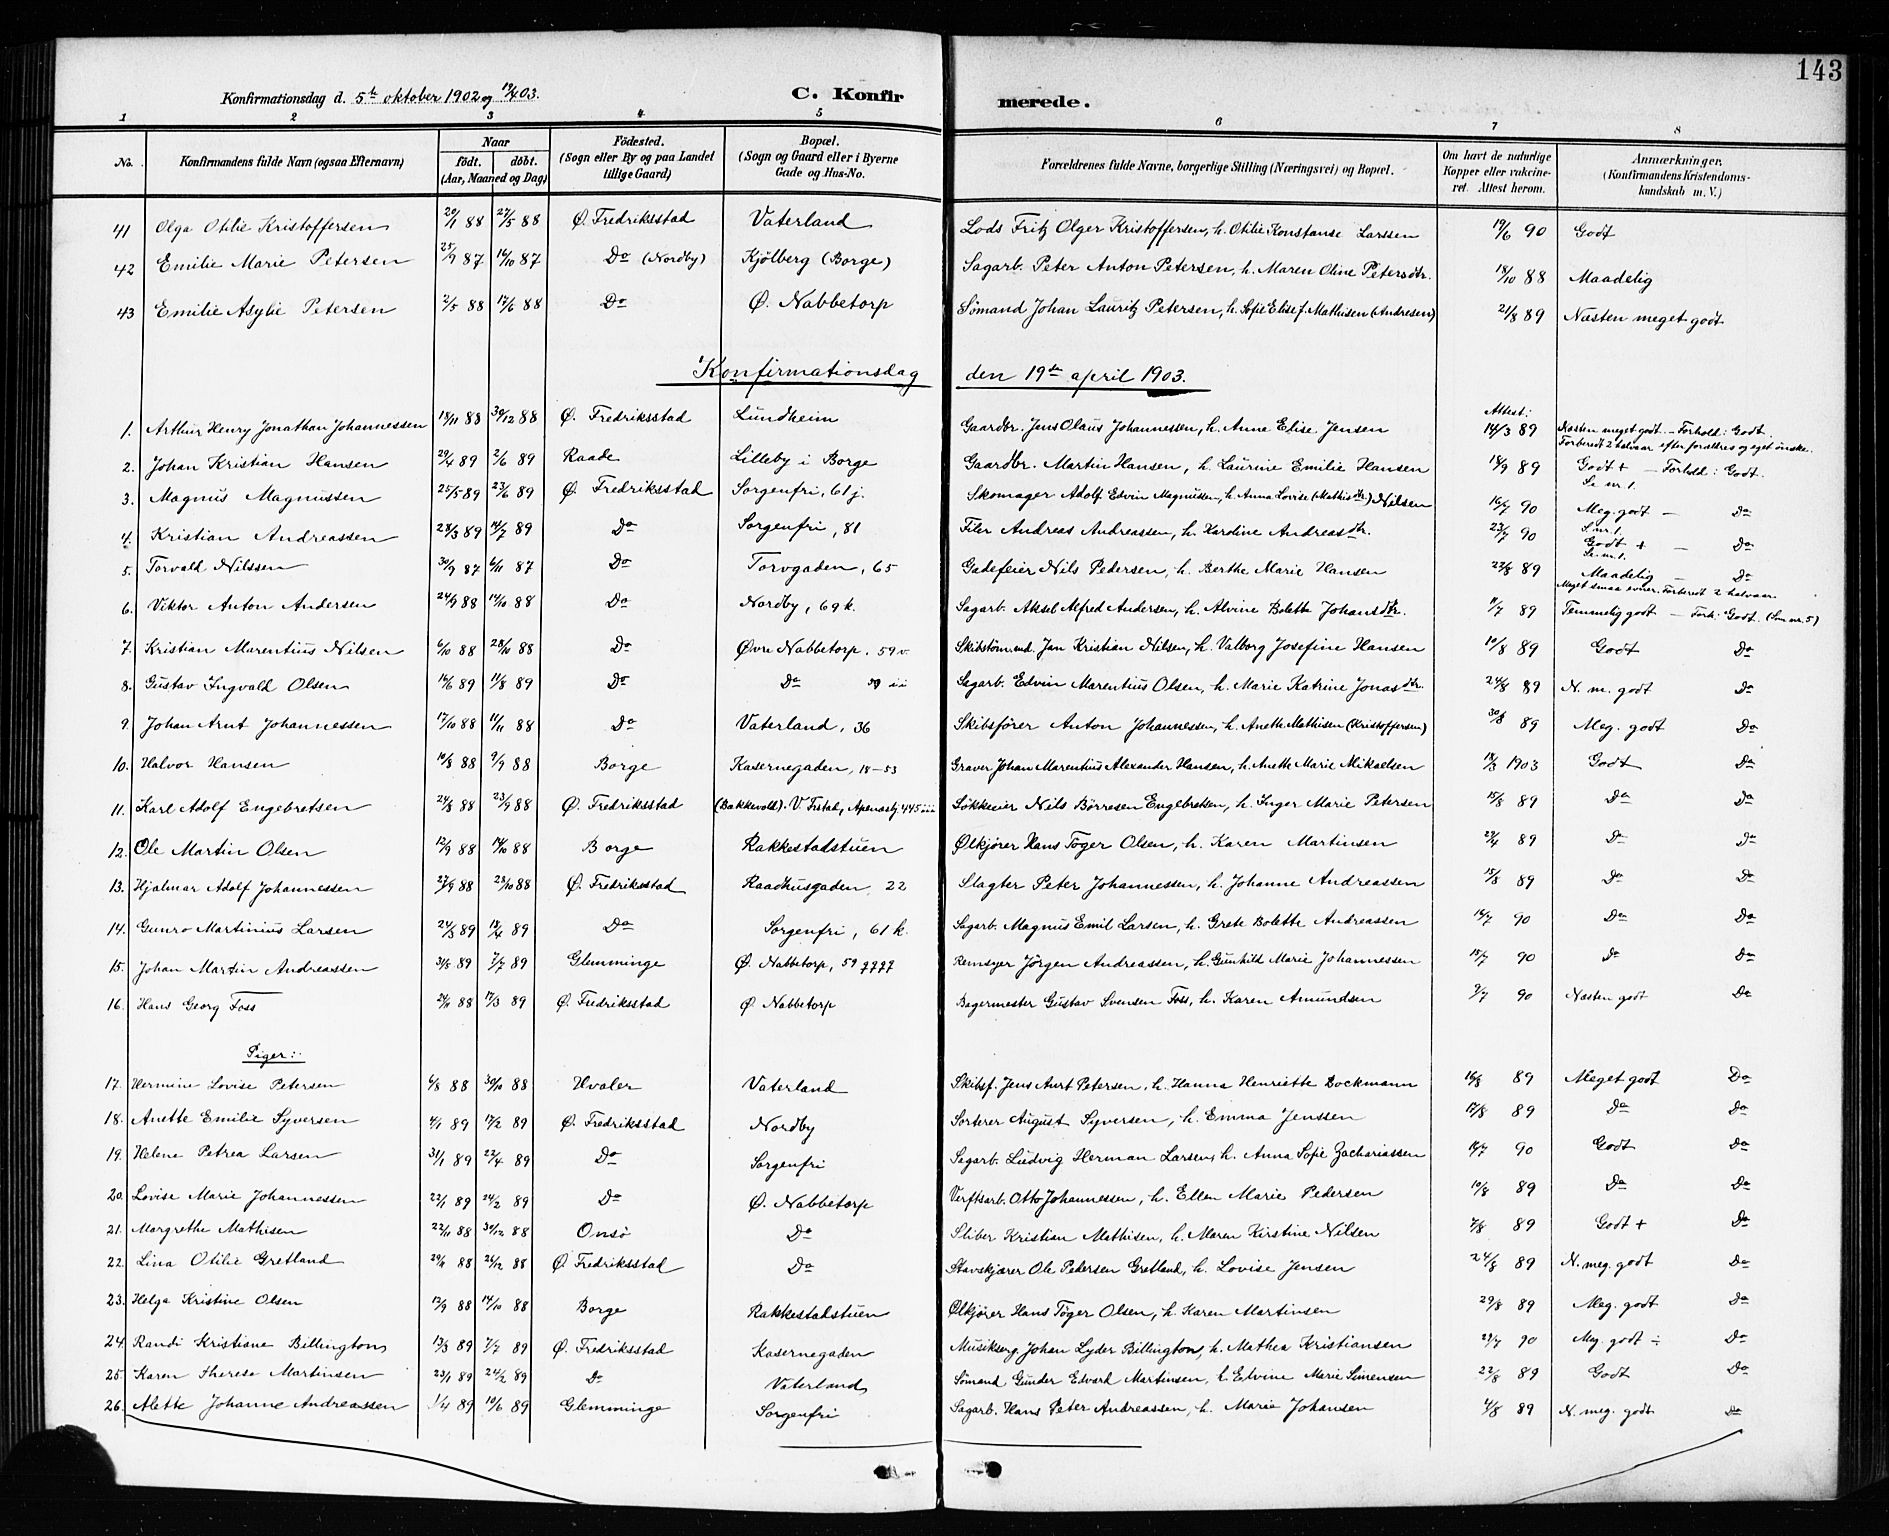 143
Konfirmationsdag d. 5te oktober 1902 og 19/4 03. C. Konfirmerede.
1 2 3 4 5 6 7 8
No. Konfirmandens fulde Navn (ogsaa Efternavn) Naar født. døbt. (Aar, Maaned og Dag) Fødested. (Sogn eller By og paa Landet tillige Gaard) Bopæl. (Sogn og Gaard eller i Byerne Gade og Hus-No. Forældrenes fulde Navne, borgerlige Stilling (Næringsvei) og Bopæl. Om havt de naturlige Kopper eller vakcineret. Attest herom. Anmærkninger. (Konfirmandens Kristendomskundskab m. V.)
41 Olga Otilie Kristoffersen 20/1 88 27/5 88 Ø. Fredriksstad Vaterland Lods Fritz Olger Kristoffersen, h. Otilie Konstanse Larssen 19/6 90 Godt
42 Emilie Marie Petersen 25/9 87 16/10 87 Do (Nordby) Kjølberg (Borge) Sagarb. Peter Anton Petersen, h. Maren Oline Petersdtr. 18/10 88 Maadelig
43 Emilie Asylie Petersen 2/5 88 17/6 88 Do Ø. Nabbetorp Sømand Johan Lauritz Petersen, h. Sofie Elise f. Mathisen (Andresen) 21/8 89 Næsten meget godt
Konfirmationsdag den 19de april 1903.
Attest:
1. Arthur Henry Jonathan Johannessen 18/11 88 30/12 88 Ø. Fredriksstad Lundheim Gaardbr. Jens Olaus Johannessen, h. Anne Elise Jensen 14/3 89 Næsten meget godt. – Forhold: Godt. Forberedt 2 halvaar efter forældres og eget ønske.
2. Johan Kristian Hansen 29/4 89 2/6 89 Raade Lilleby i Borge Gaardbr. Martin Hansen, h. Laurine Emilie Hansen 18/9 89 Godt + – Forhold: Godt. Se nr. 1.
3. Magnus Magnussen 25/5 89 23/6 89 Ø. Fredriksstad Sorgenfri, 61 j. Skomager Adolf Edvin Magnussen, h. Anna Lovise (Mathisdtr.) Nilsen 16/7 90 Meg. godt – Do
4. Kristian Andreassen 28/3 89 14/7 89 Do Sorgenfri, 81 Filer Andreas Andreassen, h. Karoline Andreasdtr. 23/7 90 Godt + – Do Se nr. 1.
5. Torvald Nilssen 30/9 87 6/11 87 Do Torvgaden, 65 Gadefeier Nils Pedersen, h. Berthe Marie Hansen 22/8 89 Maadelig – Do Meget smaa evner. Forberedt 2 halvaar.
6. Viktor Anton Andersen 24/9 88 14/10 88 Do Nordby, 69 k. Sagarb. Aksel Alfred Andersen, h. Alvine Bolette Johansdtr. 11/7 89 Temmelig godt – Forh: Godt. (Som nr. 5)
7. Kristian Marentius Nilsen 6/10 88 28/10 88 Do Øvre Nabbetorp. 59 v. Skibstømmd. Jan Kristian Nilsen, h. Valborg Josefine Hansen 10/8 89 Godt Do
8. Gustav Ingvald Olsen 16/6 89 11/8 89 Do Do 59 ii Sagarb. Edvin Marentius Olsen, h. Marie Katrine Jonasdtr. 24/8 89 N. m. godt Do
9. Johan Arnt Johannessen 17/10 88 11/11 88 Do Vaterland, 36 Skibsfører Anton Johannessen, h. Anette Mathisen (Kristoffersen) 30/8 89 Meg. godt Do
10. Halvor Hansen 10/8 88 9/9 88 Borge Kasernegaden, 18–53 Graver Johan Marentius Alexander Hansen, h. Anette Marie Mikaelsen 18/3 1903 Godt Do
11. Karl Adolf Engebretsen 24/8 88 23/9 88 Ø. Fredriksstad (Bakkevold). V. Frstad, Apenesbj. 445 iii Nils Børresen Engebretsen, h. Inger Marie Petersen 15/8 89 Do Do
12. Ole Martin Olsen 12/9 88 14/10 88 Borge Rakkestadstuen Ølkjører Hans Tøger Olsen, h. Karen Martinsen 29/4 89 Do Do
13. Hjalmar Adolf Johannessen 27/9 88 28/10 88 Ø. Fredriksstad Raadhusgaden, 22 Slagter Peter Johannessen, h. Johanne Andreassen 15/8 89 Do Do
14. Gunro Martinius Larsen 24/3 89 18/4 89 Do Sorgenfri, 61 k. Sagarb. Magnus Emil Larsen, h. Grete Bolette Andreassen 16/7 90 Do Do
15. Johan Martin Andreassen 31/5 89 7/7 89 Glemminge Ø. Nabbetorp, 59 qqqq Remsyer Jørgen Andreassen, h. Gunhild Marie Johannessen 15/7 90 Do Do
16. Hans Georg Foss 21/11 88 17/3 89 Ø. Fredriksstad Ø. Nabbetorp Bagermester Gustav Svensen Foss, h. Karen Amundsen 9/7 90 Næsten godt Do
Piger:
17. Hermine Lovise Petersen 6/8 88 30/10 88 Hvaler Vaterland Skibsf. Jens Aurt Petersen, h. Hanna Henriette Bockmann 16/8 89 Meget godt Do
18. Anette Emilie Syversen 4/1 89 17/2 89 Ø. Fredriksstad Nordby Sorterer August Syversen, h. Emma Jenssen 17/8 89 Do Do
19. Helene Petrea Larsen 31/1 89 22/4 89 Do Sorgenfri Sagarb. Ludvig Herman Larsen, h. Anna Sofie Zachariassen 16/7 90 Godt Do
20. Lovise Marie Johannessen 22/1 89 24/2 89 Do Ø. Nabbetorp Verftsarb. Otto Johannessen, h. Ellen Marie Pedersen 10/8 89 Do Do
21. Margrethe Mathisen 22/11 88 30/12 88 Onsø Do Sliber Kristian Mathisen, h. Maren Kirstine Nilsen 7/8 89 Godt + Do
22. Lina Otilie Gretland 29/11 88 26/12 88 Ø. Fredriksstad Do Stavskjærer Ole Petersen Gretland, h. Lovise Jensen 24/8 89 N. meg. godt Do
23. Helga Kristine Olsen 12/9 88 14/10 88 Borge Rakkestadstuen Ølkjører Hans Tøger Olsen, h. Karen Martinsen 29/8 89 Meg. godt Do
24. Randi Kristiane Billington 13/3 89 7/7 89 Ø. Fredriksstad Kasernegaden Musikserg. Johan Lyder Billington, h. Mathea Kristiansen 29/7 90 Meg. godt ÷ Do
25. Karen Therese Martinsen 23/1 89 24/2 89 Do Vaterland Sømand Gunder Edvard Martinsen, h. Edvine Marie Simensen 22/8 89 Godt Do
26. Alette Johanne Andreassen 1/4 89 10/6 89 Glemminge Sorgenfri Sagarb. Hans Peter Andreassen, h. Marie Johansen 4/8 89 N. meg. godt Do